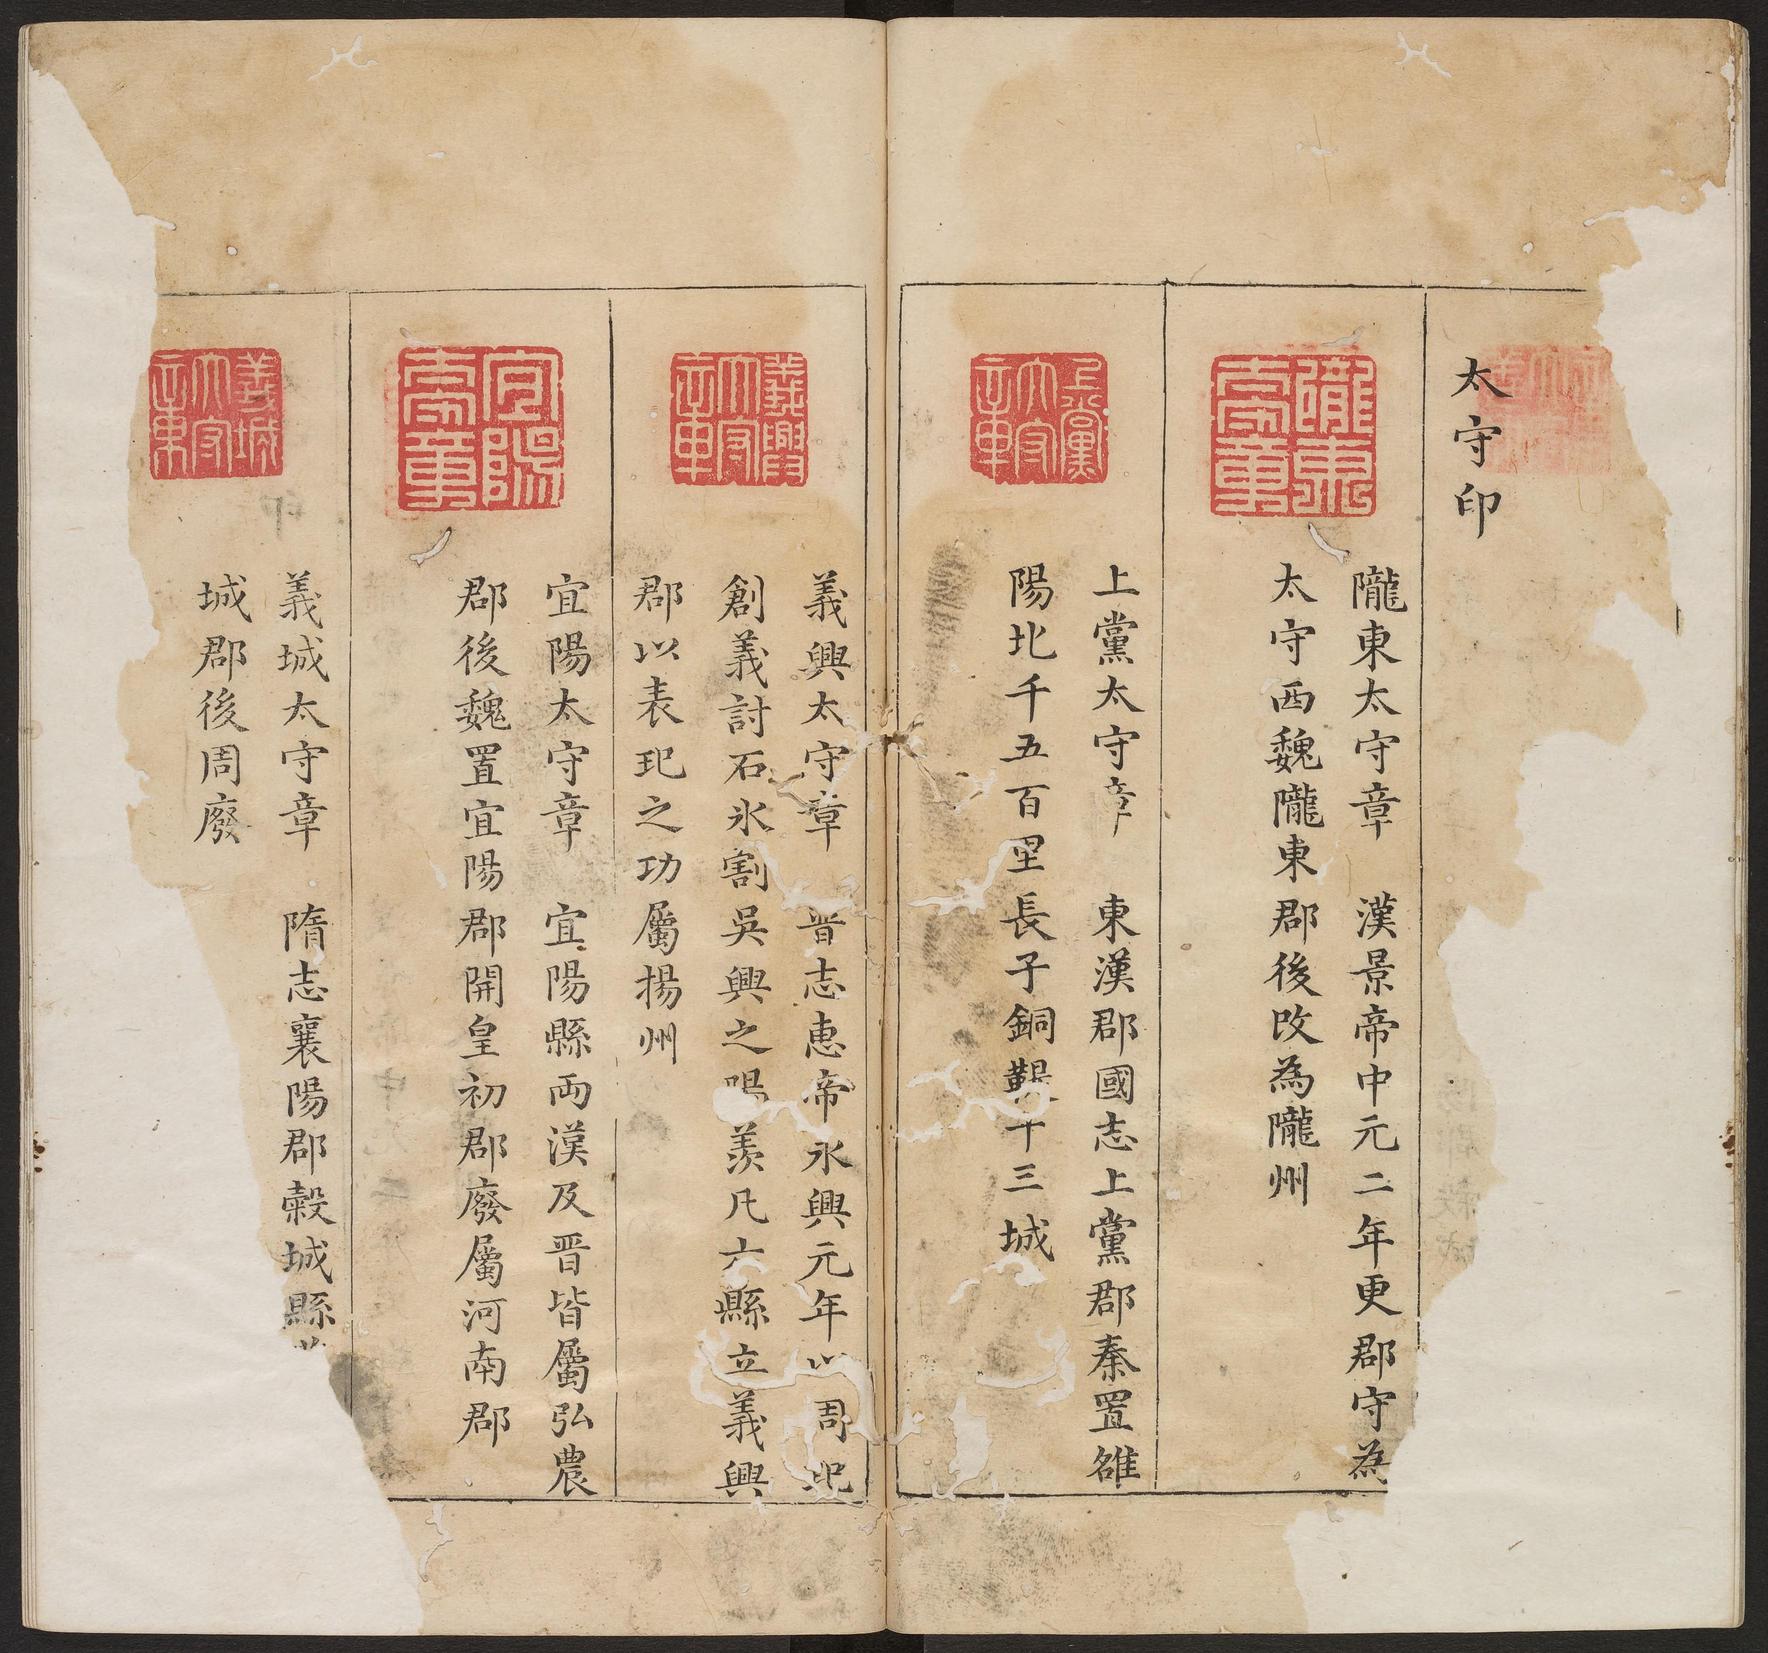 太守印
隴東太守章　漢景帝中元二年更郡守為
太守西魏隴東郡後改為隴州
上黨太守章　東漢郡國志上黨郡秦置雒
陽北千五百里長子銅鞮十三城
義興太守章　晋志惠帝永興元年以周玘
創義討石氷割吳興之陽羨凡六縣立義興
郡以表玘之功屬揚州
宜陽太守章　宜陽縣両漢及晋皆屬弘農
郡後魏置宜陽郡開皇初郡廢屬河南郡
義城太守章　隋志襄陽郡榖城縣
城郡後周廢
隴東太守章
上黨太守章
義興太守章
宜陽太守章
義城太守章